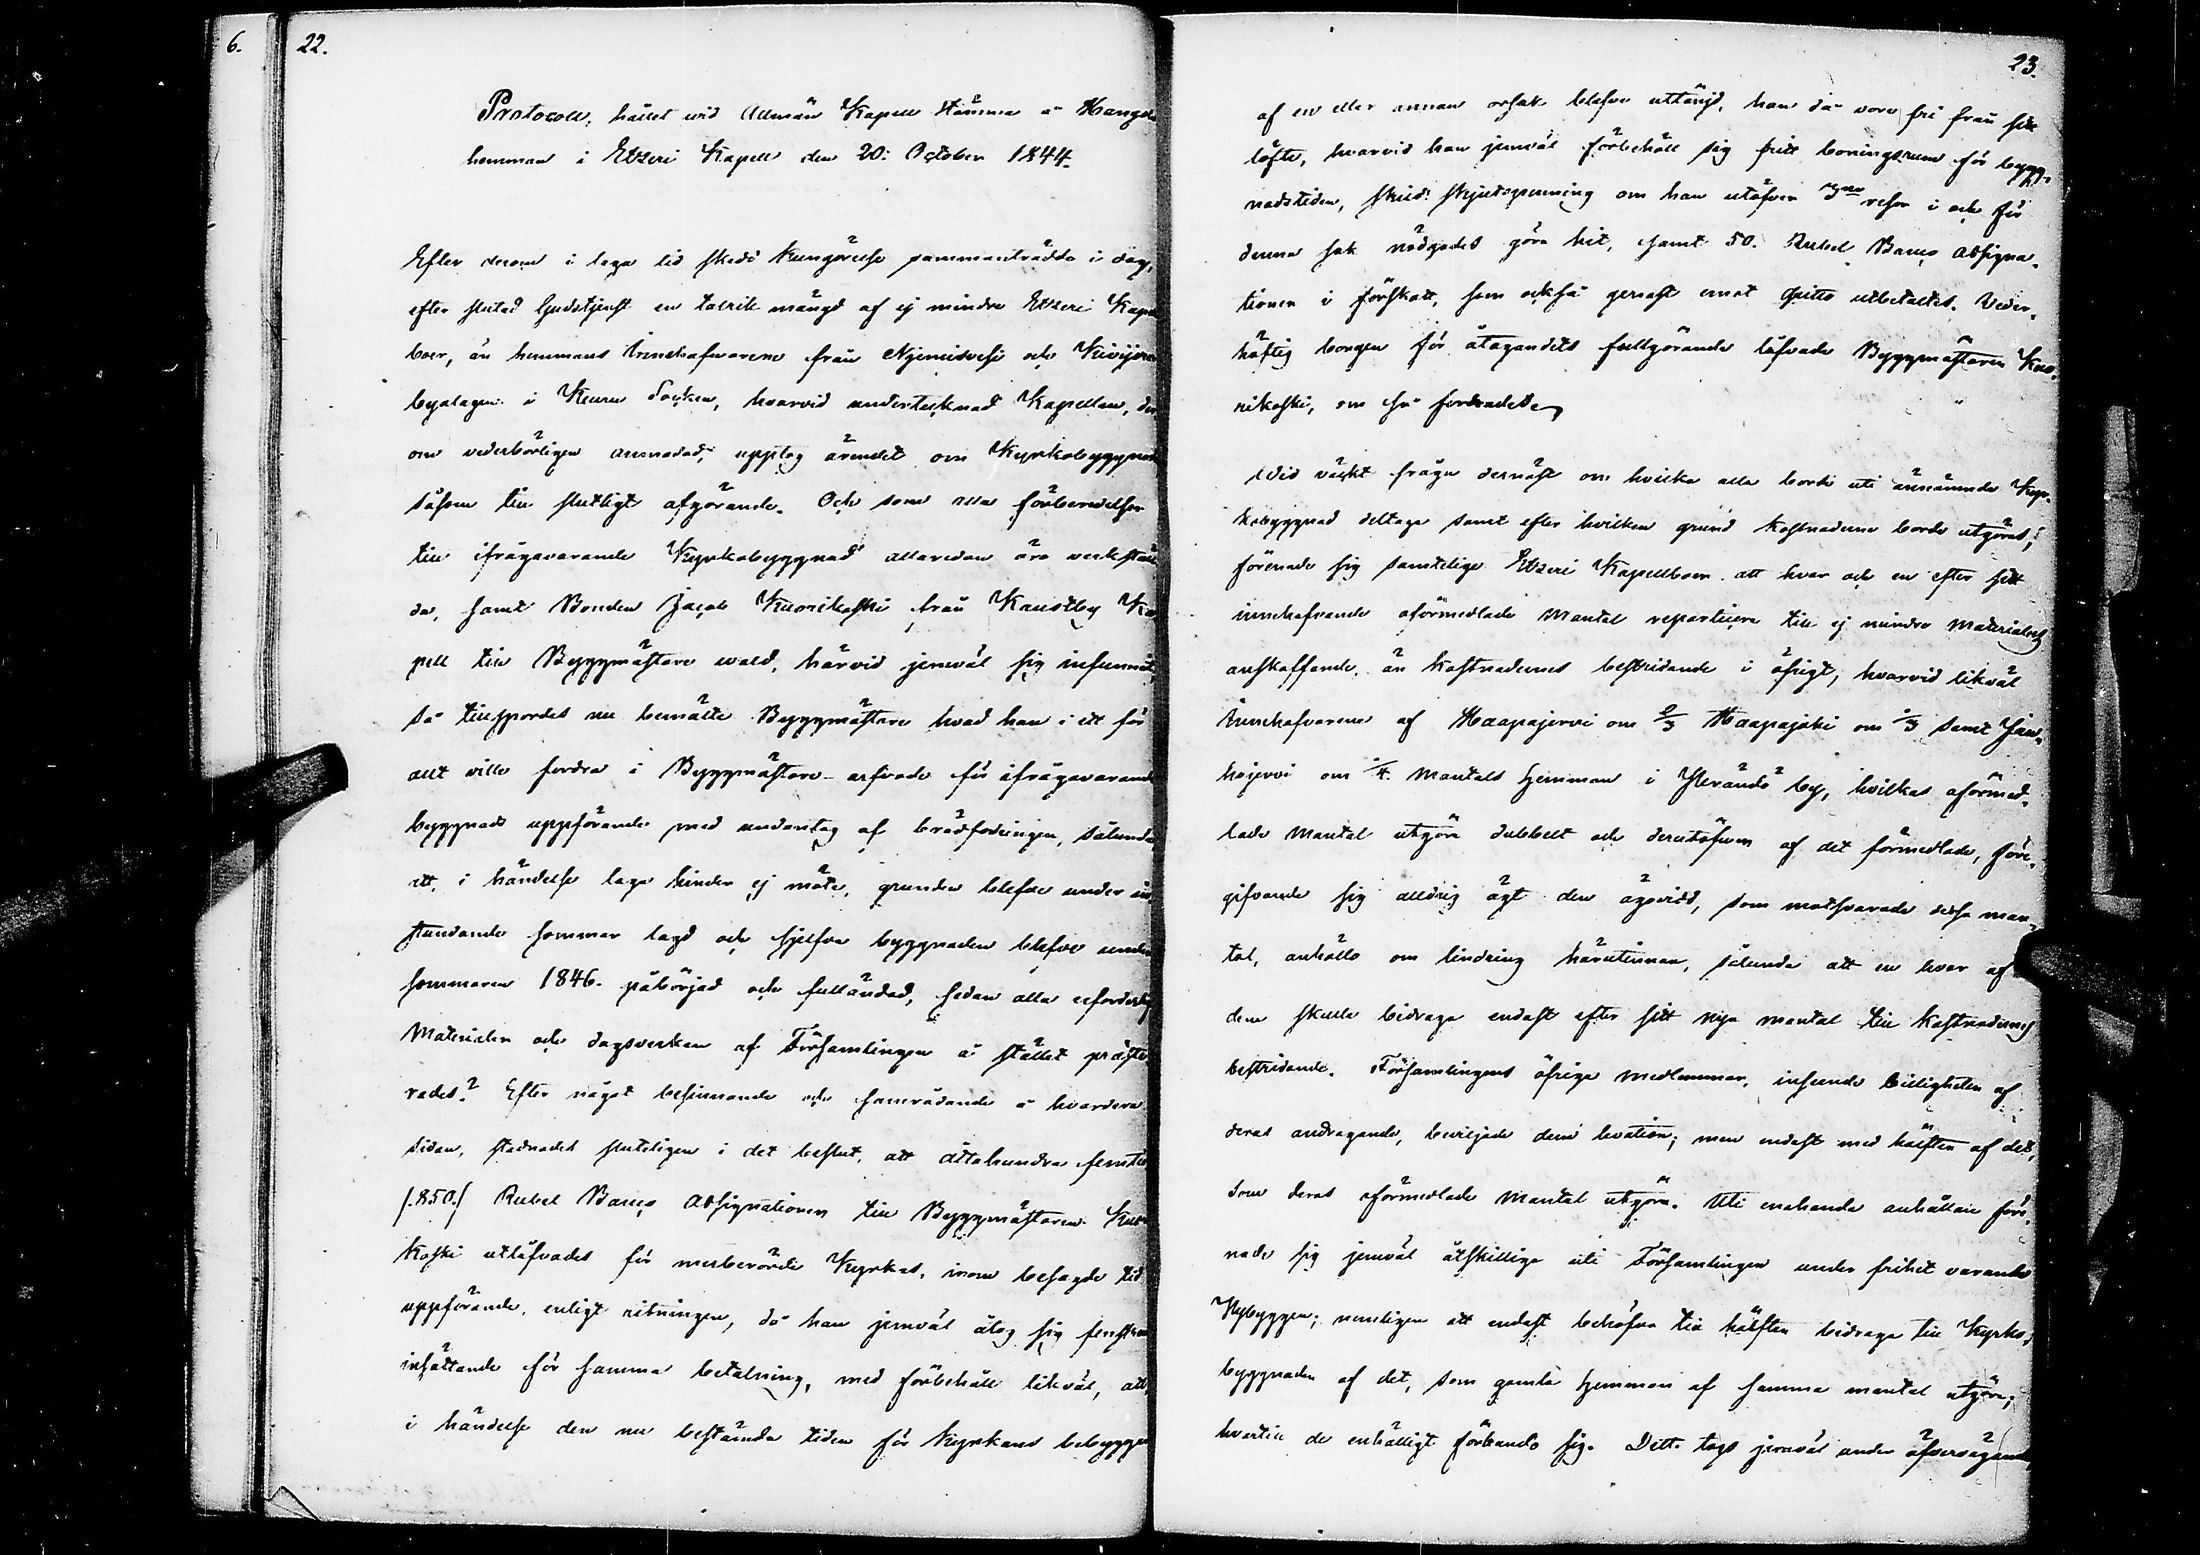 6.
22.
Protocoll, hållet wid Allmän Kapell Stämma å Hangas
hemman i Etzeri Kapell den 20: October 1844.
Efter derom i laga tid skedd kungörelse sammanträdde i dag,
efter slutad Gudstjenst en talrik mängd af ej mindre Etzeri Kapell
boer, än hemmans Innehafvarene från Njemisvesi och
byalagen i Keuru Socken, hvarvid undertecknad Kapellan, der
om vederbörligen anmodad, upptog ärendet om Kyrkobyggna
såsom till slutligt afgörande. Och som alla förberedelser
till ifrågavarande Kyrkobyggnad allaredan äro verkstäl
da, samt Bonden Jacob Kuorikoski från Kaustby Ka
pell till Byggmästare wald, härvid jemväl sig infunnit,
så tillspordes nu bemälte Byggmästare hvad han i ett för
allt ville fordra i Byggmästare-arfvode för ifrågavarande
byggnads uppförande med undantag af brädfodringen, sålunda
att, i händelse laga hinder ej möta, grunden blefve under in
stundande sommar lagd och sjelfva byggnaden blefve under
sommaren 1846. påbörjad och fulländad, sedan alla erforderlig
Materialer och dagsverken af Församlingen å stället præste
rades? Efter något besinnande och samrådande å hvardera
sidan, stadnades slutligen i det beslut, att åttahundra femtio
/:850:/ Rubel Banco Assignationer till Byggmästaren Kuori
koski utlofvades för merberörde Kyrkas, inom besagde tid
uppförande, enligt ritningen, då han jemväl åtog sig fenstrens
insättande för samma betalning, med förbehåll likväl, att,
i händelse den nu bestämda tiden för Kyrkans bebyggan
23.
af en eller annan orsak blefve uttänjd, han då vore fri från sitt
löfte, hvarvid han jemväl förbehöll sig fritt boningsrum för bygg-
nadstiden, skjutspenning om han utöfver 3ne resor i och för
denna sak nödgades göra hit, samt 50. Rubel Banco Assigna-
tioner i förskott, som också genast emot qvitto utbetaltes. Veder-
häftig borgen för åtagandets fullgörande lofvade Byggmästaren Kuo-
rikoski, om så fordrades.
Wid väckt fråga dernäst om hvilka alla borde uti ännämnde Kyr-
kobyggnad deltaga samt efter hvilken grund kostnaderne borde utgöras,
förenade sig samtelige Etzeri Kapellboer att hvar och en efter sitt
innehafvande oförmedlade Mantal repartiera till ej mindre Materialers
anskaffande, än kostnadernes bestridande i öfrigt, hvarvid likväl
Innehafvarene af Haapajervi om 2/3 Haapajoki om 1/3 samt
om 1/4 Mantals hemman i by, hvilkas oförmed-
lade Mantal utgöra dubbelt och derutöfver af det förmedlade, före-
gifvande sig alldrig ägt den ägovidd, som motsvarade dessa man-
tal, anhöllo om lindring härutinnan, sålunda att en hvar af
dem skulle bidraga endast efter sitt nya mantal till kostnadernes
bestridande. Församlingens öfriga medlemmar, inseende billigheten af
deras andragande, beviljade dem ; men endast med hälften af det,
som deras oförmedlade Mantal utgöra. Uti enahanda anhållan före-
nade sig jemväl åtskillige uti Församlingen under frihet varande
Nybyggen; nemligen att endast behöfva till hälften bidraga till Kyrko-
byggnaden af det, som gamla hemman af samma mantal utgöra;
hvartill de enhälligt förbundo sig. Detta togs jemväl under öfvervägande